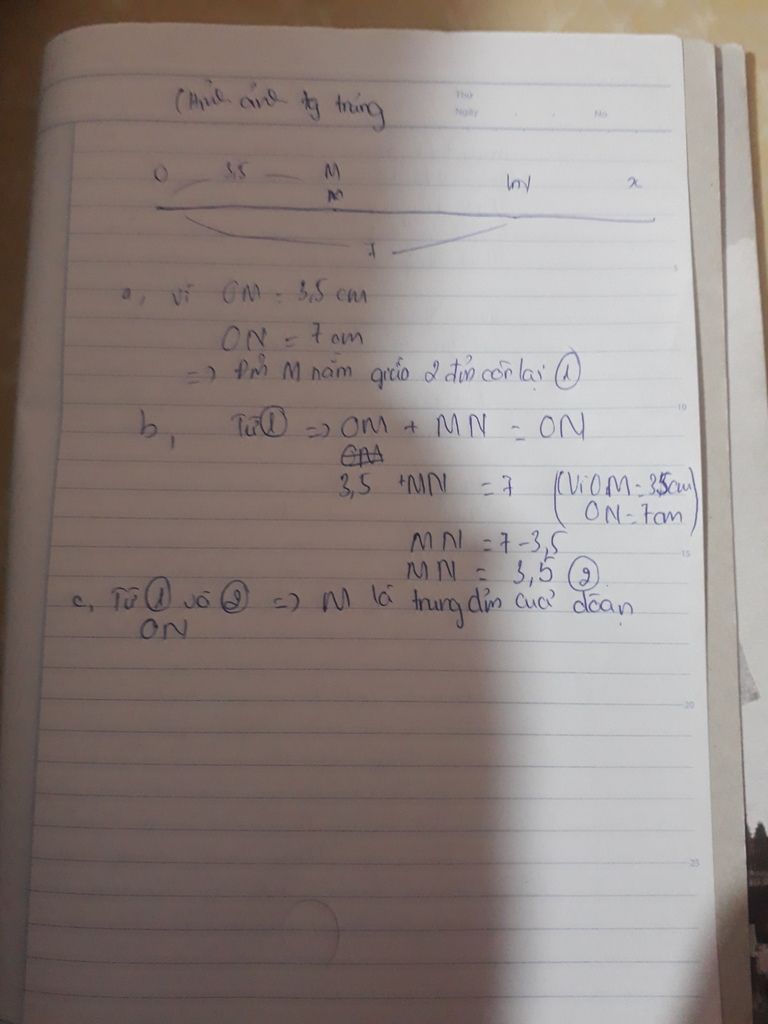 (Hình ảnh tg trưng
Thứ
Ngày . . No
O 3,5 M N x
M
7
a, Vì OM = 3,5 cm
ON = 7 cm
=> Đm M nằm giữa 2 đỉm còn lại ①
b, Từ ① => OM + MN = ON
OM
3,5 + MN = 7 (Vì OM = 3,5cm
ON = 7cm)
MN = 7 - 3,5
MN = 3,5 ②
c, Từ ① và ② => M là trung đỉm cuả đoạn
ON
5
10
15
20
25